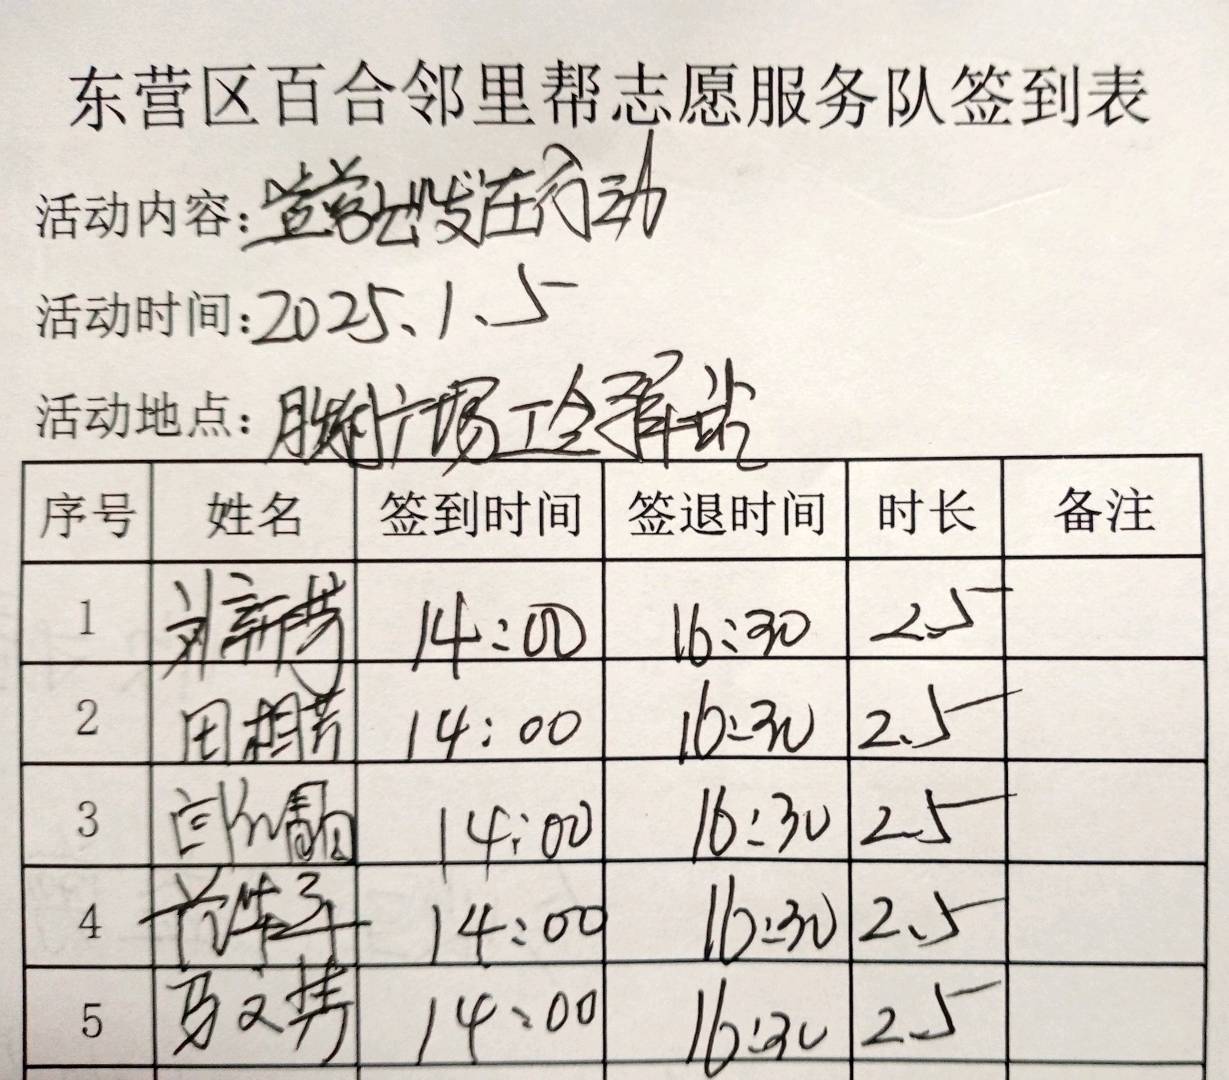 东营区百合邻里帮志愿服务队签到表
活动内容:营出发在行动
活动时间:2025.1.5
活动地点:胜利广场工会驿站
序号 姓名 签到时间 签退时间 时长 备注
1 刘新芳 14:00 16:30 2.5
2 田相芳 14:00 16:30 2.5
3 14:00 16:30 2.5
4 14:00 16:30 2.5
5 马文隽 14:00 16:30 2.5